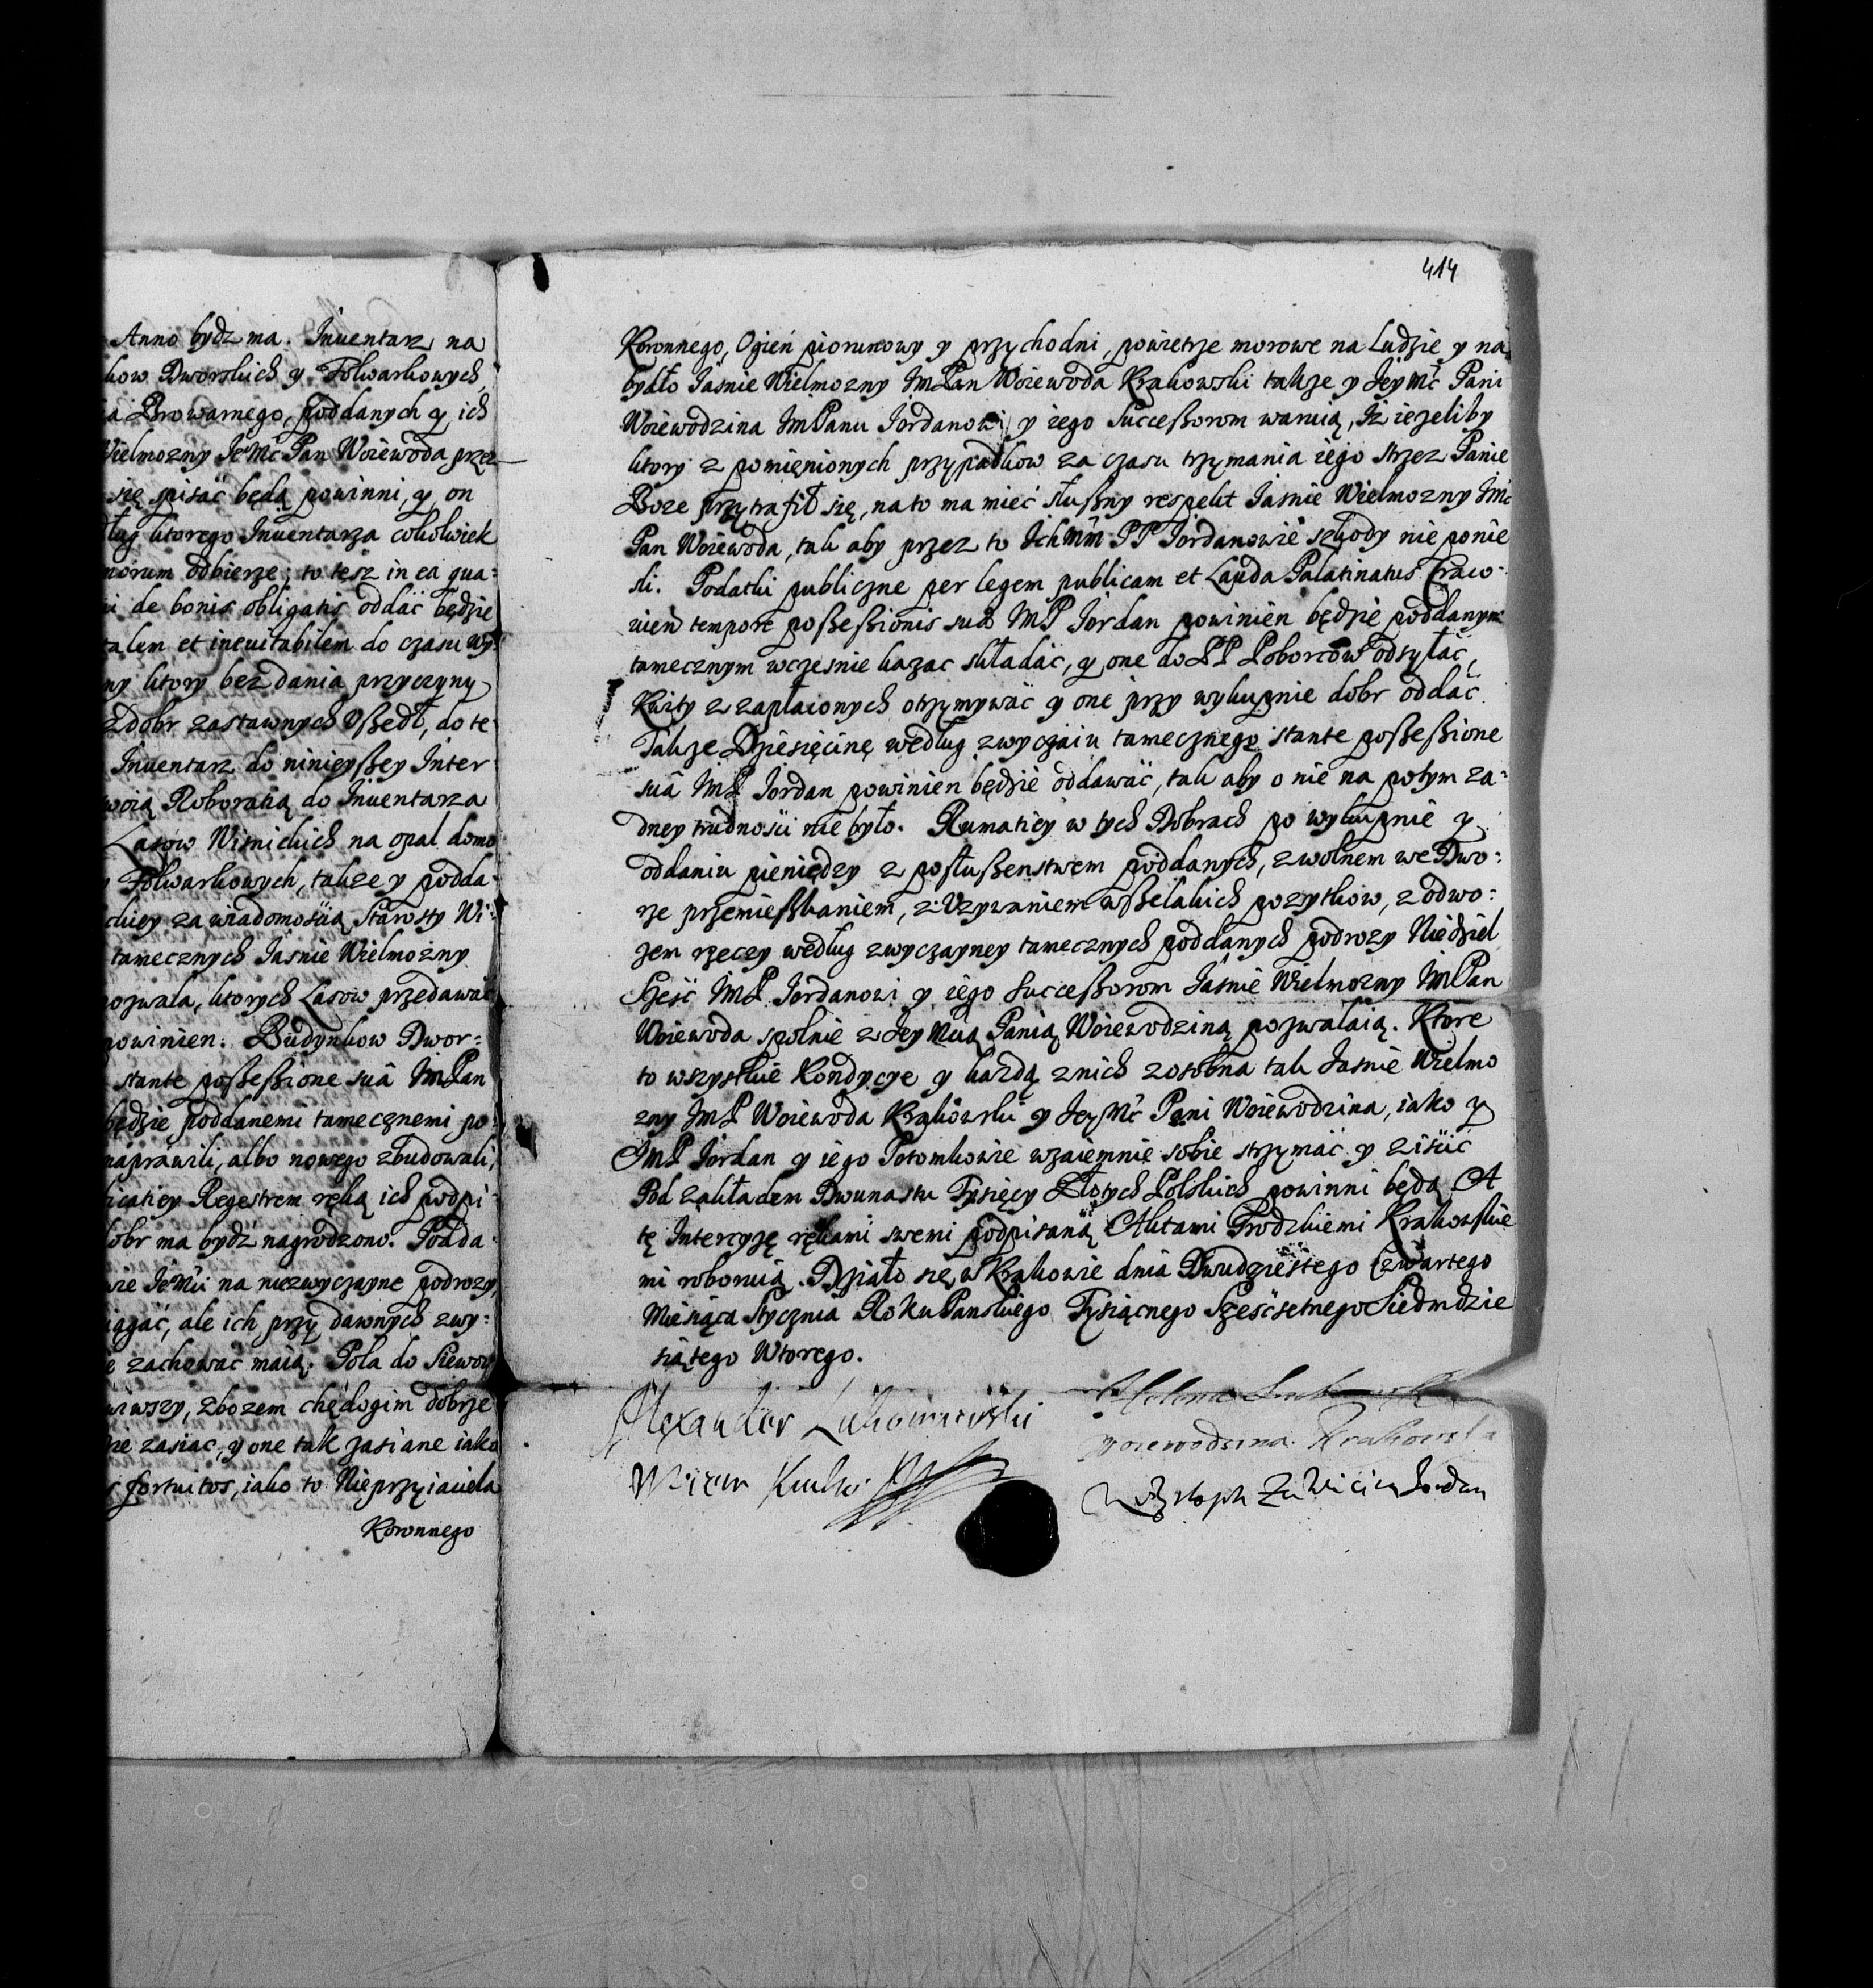 Anno bydz ma. Inuentarz na
kow Dworskich y Folwarkowych,
a Browarnego, poddanych y ich
Wielmozny JeMć Pan Woiewoda przez
się spisać będą powinni, y on
ług ktorego Inuentarza cokolwiek
norum odbierze; to tesz in ea qua=
i de bonis obligatis oddać będzie
talem et ineuitabilem do czasu wy=
ny ktory bez dania przyczyny
z dobr zastawnych Vszedł, do te
Inuentarz do ninieyszey Inter
woią Roboratią do Inuentarza
Lasow Wisnickich na opal domo
y Folwarkowych, takze y podda=
ckiey za wiadomością Starosty Wi=
tamecznych Jasnie Wielmożny
pozwala, ktorych Lasow przedawać
powinien. Budynkow Dwor=
stante possessione suâ ImPan
będzie poddanemi tamecznemi po=
naprawili, albo nowego zbudowali,
icatiey Regestrem ręką ich podpi=
dobr ma bydź nagrodzono. Podda=
wie JeMći na niezwyczayne podrozy,
iągać, ale ich przy dawnych zwy=
e zachować maią. Pola do Siewow
wiwszy, zbozem chędogim dobrze
ie zasiac, y one tak zasiane iako
s fortuitos, iako to Nieprzyiaciela
Koronnego
414
Koronnego, Ogień piorunowy y przychodni, powietrze morowe na Ludzie y na
bydło Jasnie Wielmozny ImPan Woiewoda Krakowski takze y JeyMć Pani
Woiewodzina ImPanu Jordanowi y iego Successorom waruią, Iż iezeliby
ktory z pomięnionych przypadkow za czasu trzymania iego strzez Panie
Boze przytrafił się, na to ma mieć słuszny respekt Jasnie Wielmozny Imć
Pan Woiewoda, tak aby przez to IchMm PP Jordanowie szkody nie ponie
sli. Podatki publiczne per legem publicam et Lauda Palatinatus Crac̃o=
vien tempore possessionis suæ ImP Jordan powinien będzie poddanym
tamecznym wczesnie kazac składać, y one do PP Poborcow odsyłać,
Kwity z zapłaconych otrzymywać y one przy wykupnie dobr oddać
Takze Dziesięcinę według zwyczaiu tamecznego stante possessione
suâ ImP Jordan powinien będzie oddawać, tak aby o nie na potym za=
dney trudności nie było. Rumatiey w tych Dobrach po wykupnie y
oddaniu pieniędzy z posłuszenstwem poddanych, z wolnem we Dwo=
rze przemieszkaniem, z Vzywaniem wszelakich pozytkow, z odwo=
zem rzeczy według zwyczayney tamecznych poddanych podrozy Niedziel
Szesć ImP. Jordanowi y iego Successorom Jaśnie Wielmozny ImPan
Woiewoda spolnie z JeyMcią Panią Woiewodziną pozwalaią. Ktore
to wszystkie Kondycye y kazdą z nich zosobna tak Jasnie Wielmo
zny ImP Woiewoda Krakowski y JeyMć Pani Woiewodzina, iako y
ImP Jordan y iego Potomkowie wzaiemnie sobie strzymać y ziścić
Pod zakładem Dwunastu Tysięcy Złotych Polskich powinni będą. A
tę Intercyzę rękami swemi podpisaną Aktami Grodzkiemi Krakowskie
mi roboruią. Działo się w Krakowie dnia Dwudziestego Czwartego
Miesiąca Stycznia Roku Panskiego Tysiącnego Szescsetnego Siedmdzie
siątego Wtorego.
Alexander Lubomirski
Helena Lubomirska
woiewodzina Krakowska
Jordan